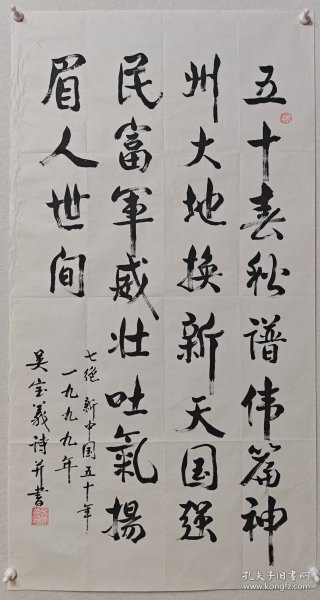 五十春秋谱伟篇神
州大地换新天国强
民富军威壮吐氣揚
眉人世间
七绝 新中国五十年
一九九九年
吴宝義诗并書
孔夫子旧书网
www.kongfz.com